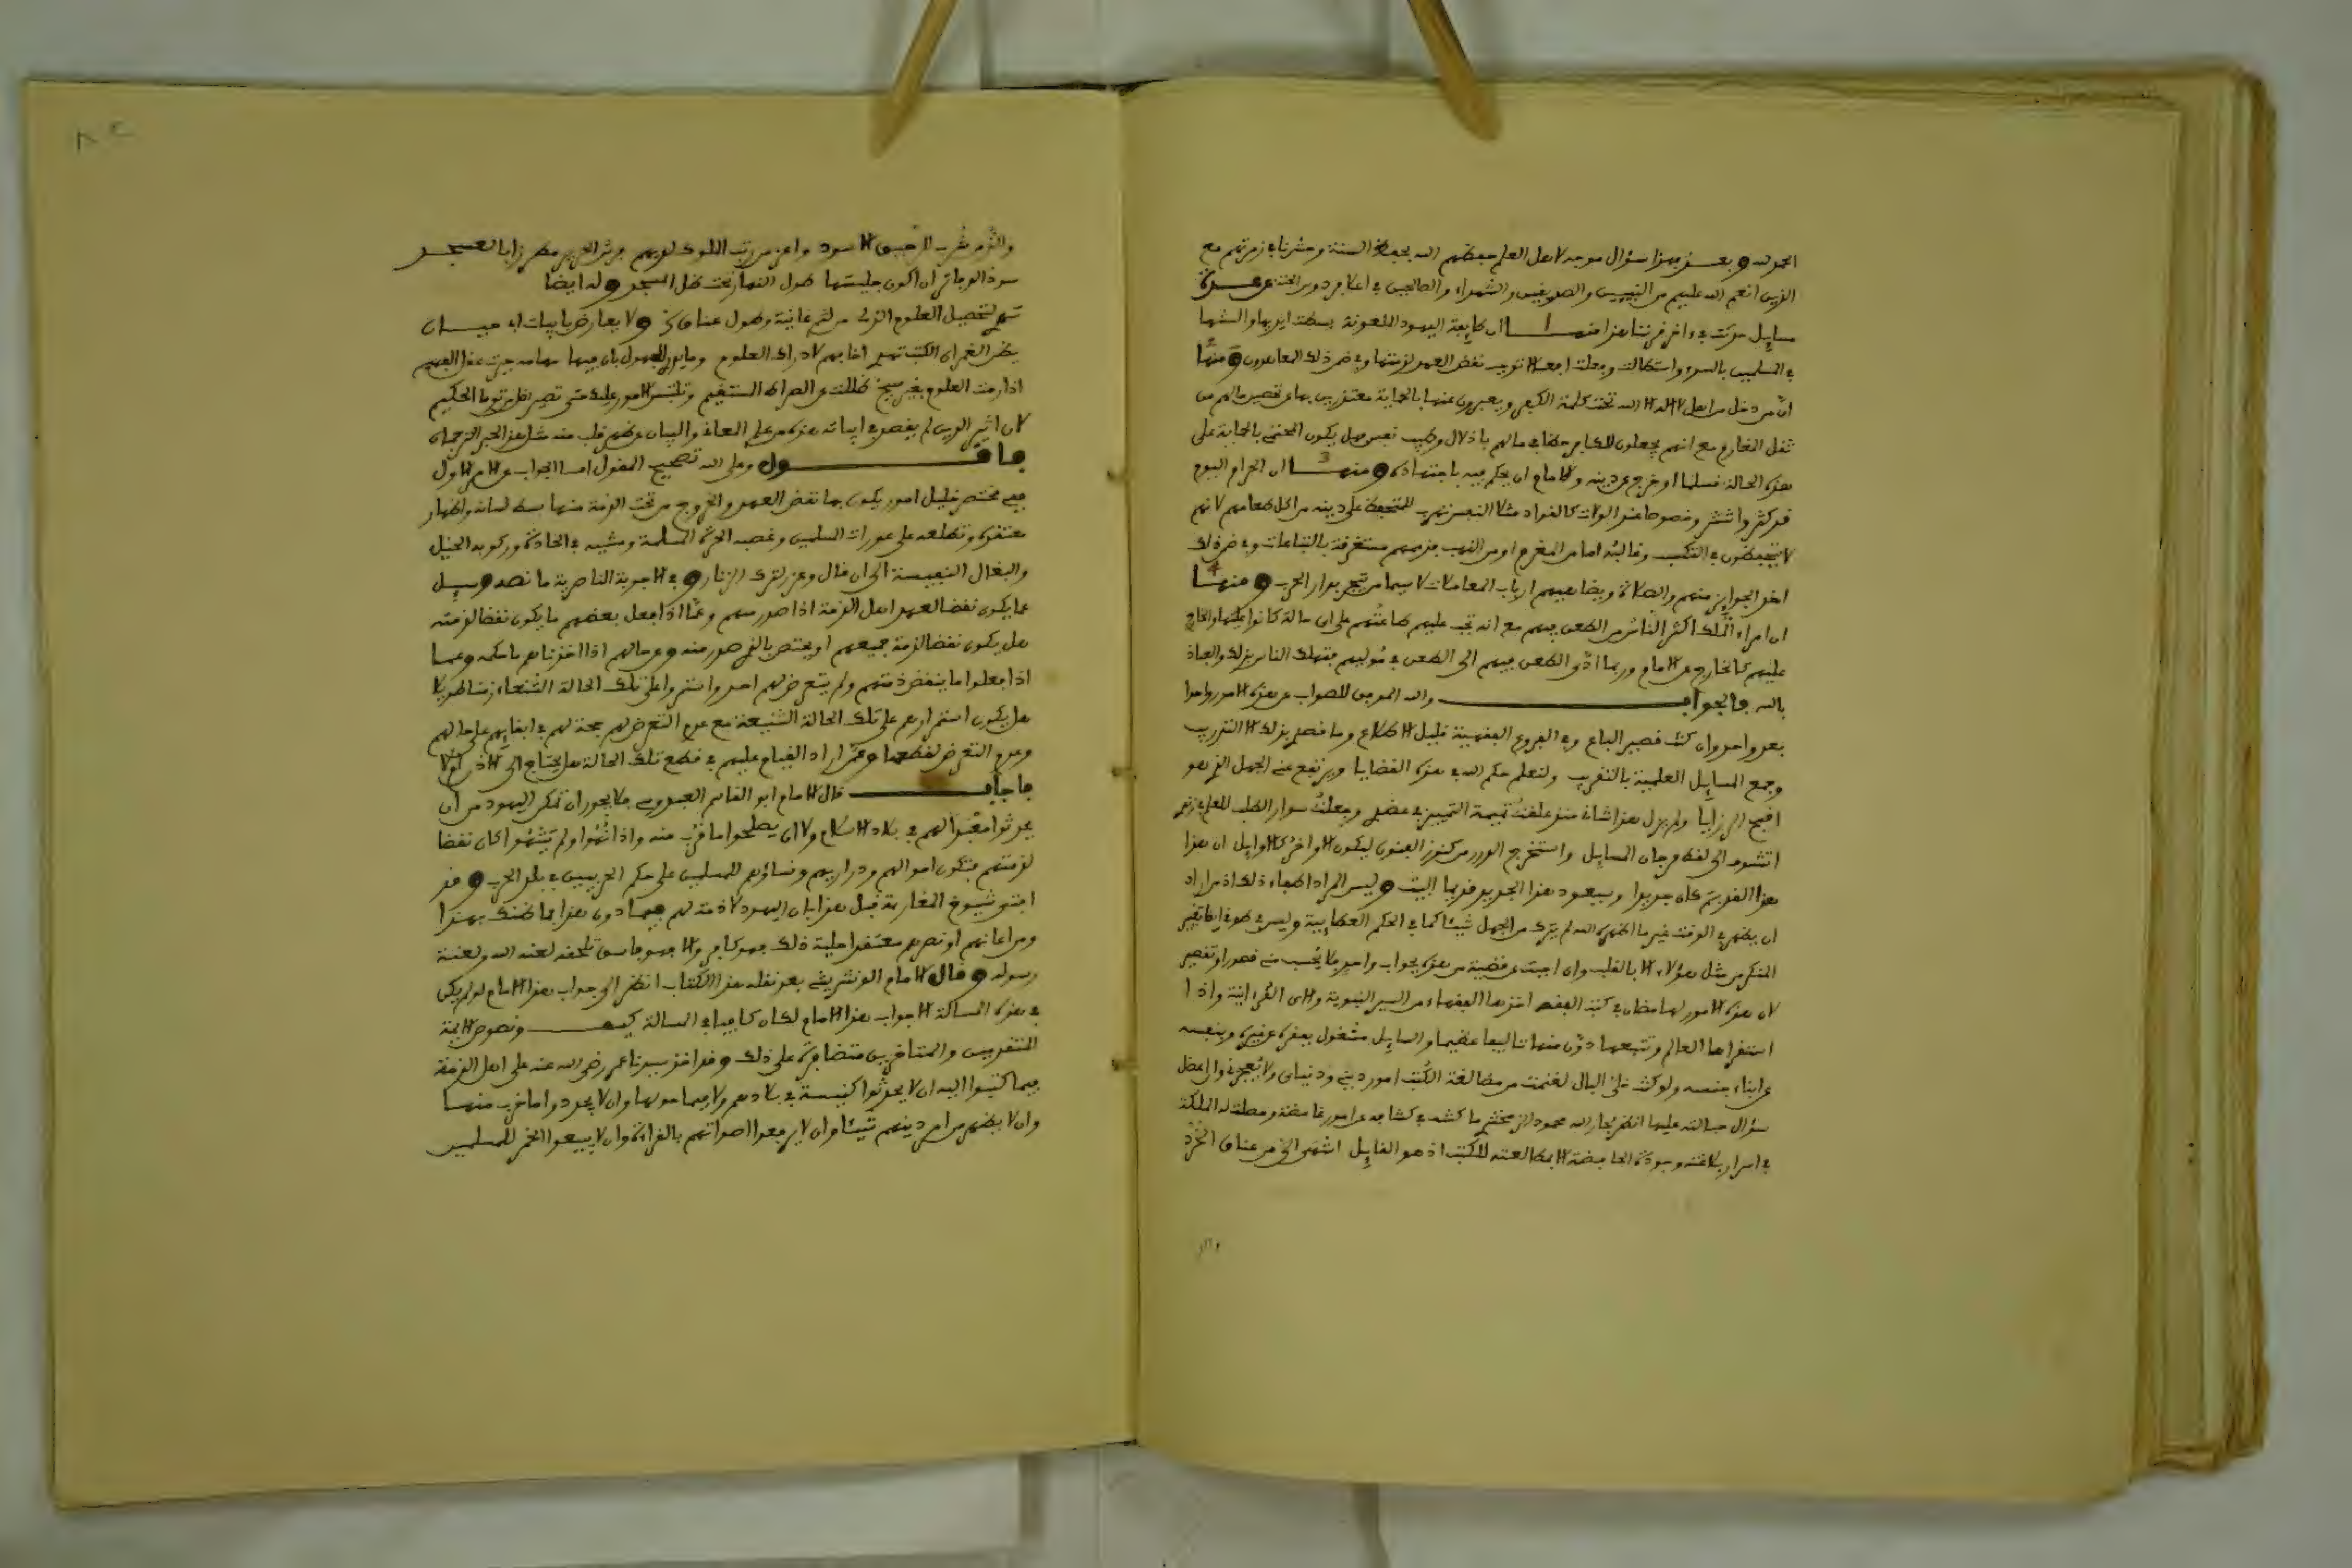 الحمد لله وبعد فهذا سؤال موجه لاهل العلم حفظهم الله بحفظ السنة وحشرنا في زمرتهم مع
الذين انعم الله عليهم من النبيين والصديقين والشهداء والصالحين في اعلا فردوس الجنة عن عدة
مسايل حدثت في اخر قرننا هذا منها ان طايفة اليهود الملعونة بسطت ايديها والسنتها
في المسلمين بالسوء واستطالت وفعلت افعالا توجب نقض العهد لذمتها وفي ضمن ذلك المعاهدون ومنها
ان من دخل من اهل لا اله الا الله تحت كلمة الكفر ويعبرون عنها بالحماية معتذرين بها عن تحصين مالهم من
ثقل المغارم مع انهم يجعلون للكافر حظا في مالهم باذلال وطيب نفس فهل يكون المحتمي بالحماية على
هذه الحالة مسلما او خرج عن دينه وللامام ان يحكم فيه باجتهاده ومنها ان الحرام اليوم
قد كثر وانتشر وخصوصا عند الولات كالقواد مثلا الذين تهرب المتحفظ على دينه من اكل طعامهم لانهم
لا يتحفظون في التكسب وغالبه اما من المغرم او من النهب فذمتهم مستغرقة بالتباعات وفي ضمن ذلك
اخذ الجوايز منهم والصلاة ويضاهيهم ارباب المعاملات لا سيما من يتجر بدار الحرب ومنها
ان امراء الملك اكثر الناس من الطعن فيهم مع انه تجب عليهم طاعتهم على اي حالة كانوا عليها والخارج
عليهم كالخارج عن الامام وربما ادى الطعن فيهم الى الطعن في موليهم فتهلك الناس بذلك والعياذ
بالله فالجواب والله الموفق للصواب عن هذه الامور واحدا
بعد واحد وان كنت قصير الباع وفي الفروع الفقهية قليل الاطلاع وما قصدي بذلك الا التدريب
وجمع المسايل العلمية بالتقريب ولنعلم حكم الله في هذه القضايا ويرتفع عني الجهل الذي هو
اقبح الرزايا ولم يزل هذا شاني منذ علقت تميمة التمييز في عضدي وجعلت سوار الطلب للعلم في زندي
اتشوف الى لقط مرجان المسايل واستخرج الدرر من كنوز الفنون ليكون الاواخر كالاوايل ان هذا
هذا القديم كان جديدا وسيعود هذا الجديد قديما البيت وليس المراد اطفاء ذلك اذ من اراد
ان يظهر في الوقت غير ما اظهره الله لم يترك من الجهل شيئا كما في الحكم العطايية وليس في طوقي ايضا تغيير
المنكر من مثل هؤلاء الا بالقلب وان اجبت عن قضية من هذه بجواب واحد فلا يحسب مني قصورا او تقصير
لان هذه الامور لها مظان في كتب الفقه اخذها الفقهاء من السير النبوية والاي القرانية واذا
استقراها العالم وتتبعها دون منها تاليفا عظيما والسايل مشغول بفقره عن غيره وبنفسه
عن ابناء جنسه ولو كنت خلي البال لغنمت من مطالعة الكتب امور ديني ودنياي ولا يعجزني والى بعض
سؤال حبالته عليها انظر لجار الله محمود الزمخشري ما كشف في كشافه عن امور غامضة وحصلت له الملكة
في اسرار بلاغته وجودة الخافضة الا بمطالعته للكتب اذ هو القايل اشهى الي من عناق الخرد
والثم من شرب الرحيق الاسود واعز من رتب الملوك لديهم
سود الدفاتر ان اكون جليسها طول النهار تحت ظل السجر وله ايضا
سهري لتحصيل العلوم الذ لي من لثم غانية وطول عناق ولا يعارض بابيات ابي حيان
يظن الغمر ان الكتب تهدي اخا فهم لادراك العلوم وما يدري الجهول بان فيها مهامه حيرت عقل الفهيم
اذا رمت العلوم بغير شيخ ضللت عن الصراط المستقيم وتلتبس الامور عليك حتى تصير اضل من توما الحكيم
لان اثير الدين لم يقصد في ابياته هذه من علم المعاني والبيان
فاقول وعلى الله تصحيح المقول اما الجواب عن الامر الاول
ففي مختصر خليل امور يكون بها نقض العهد والخروج من تحت الذمة منها بسط لسانه واظهار
معتقده وتطلعه على عورات المسلمين وغصب الحرة المسلمة ومشيه في الجادة وركوبه الخيل
والبغال النفيسة الى ان قال وعزر لترك الزنار وفي الاجوبة الناصرية ما نصه وسيل
عما يكون نقضا لعهد اهل الذمة اذا صدر منهم وعما اذا فعل بعضهم ما يكون نقضا لذمته
هل يكون نقضا لذمة جميعهم او يختص بالذي صدر منه وعن مالهم اذا اخذناهم ما حكمه وعما
اذا فعلوا ما ينقض ذمتهم ولم يتعرض لهم احد واستمروا على تلك الحالة الشنعاء زمنا طويلا
هل يكون استمرارهم على تلك الحالة الشنيعة مع عدم التعرض لهم حجة لهم في ابقايهم على حالهم
وعدم التعرض لقطعها وعمن اراد القيام عليهم في قطع تلك الحالة هل يحتاج الى الاذن ام لا
فاجاب قال الامام ابو القاسم العبدوسي فلا يجوز ان تمكن اليهود من ان
يحدثوا معبدا لهم في بلاد الاسلام ولا ان يصلحوا ما خرب منه واذا نهوا ولم ينتهوا كان نقضا
لذمتهم فتكون اموالهم وذراريهم ونساؤهم للمسلمين على حكم الحربيين في بلد الحرب وقد
افتى شيوخ المغاربة قبل هذا بان اليهود لا ذمة لهم فيما دون هذا فما ظنك بهذا
ومن اعانهم او نصرهم معتقدا حلية ذلك فهو كافر والا فهو فاسق تلحقه لعنة الله ولعنة
رسوله وقال الامام الونشريشي بعد نقله هذا الكتاب انظر الى جواب هذا الامام لو لم يكن
في هذه المسالة الا جواب هذا الامام لكان كافيا في المسالة كيف ونصوص الايمة
المتقدمين والمتاخرين متضافرة على ذلك وقد اخذ سيدنا عمر رضي الله عنه على اهل الذمة
فيما كتبوا اليه ان لا يحدثوا كنيسة في بلادهم ولا فيما حولها وان لا يجددوا ما خرب منها
وان لا يظهر من امر دينهم شيئا وان لا يرفعوا اصواتهم بالقراءة وان لا يبيعوا الخمر للمسلمين